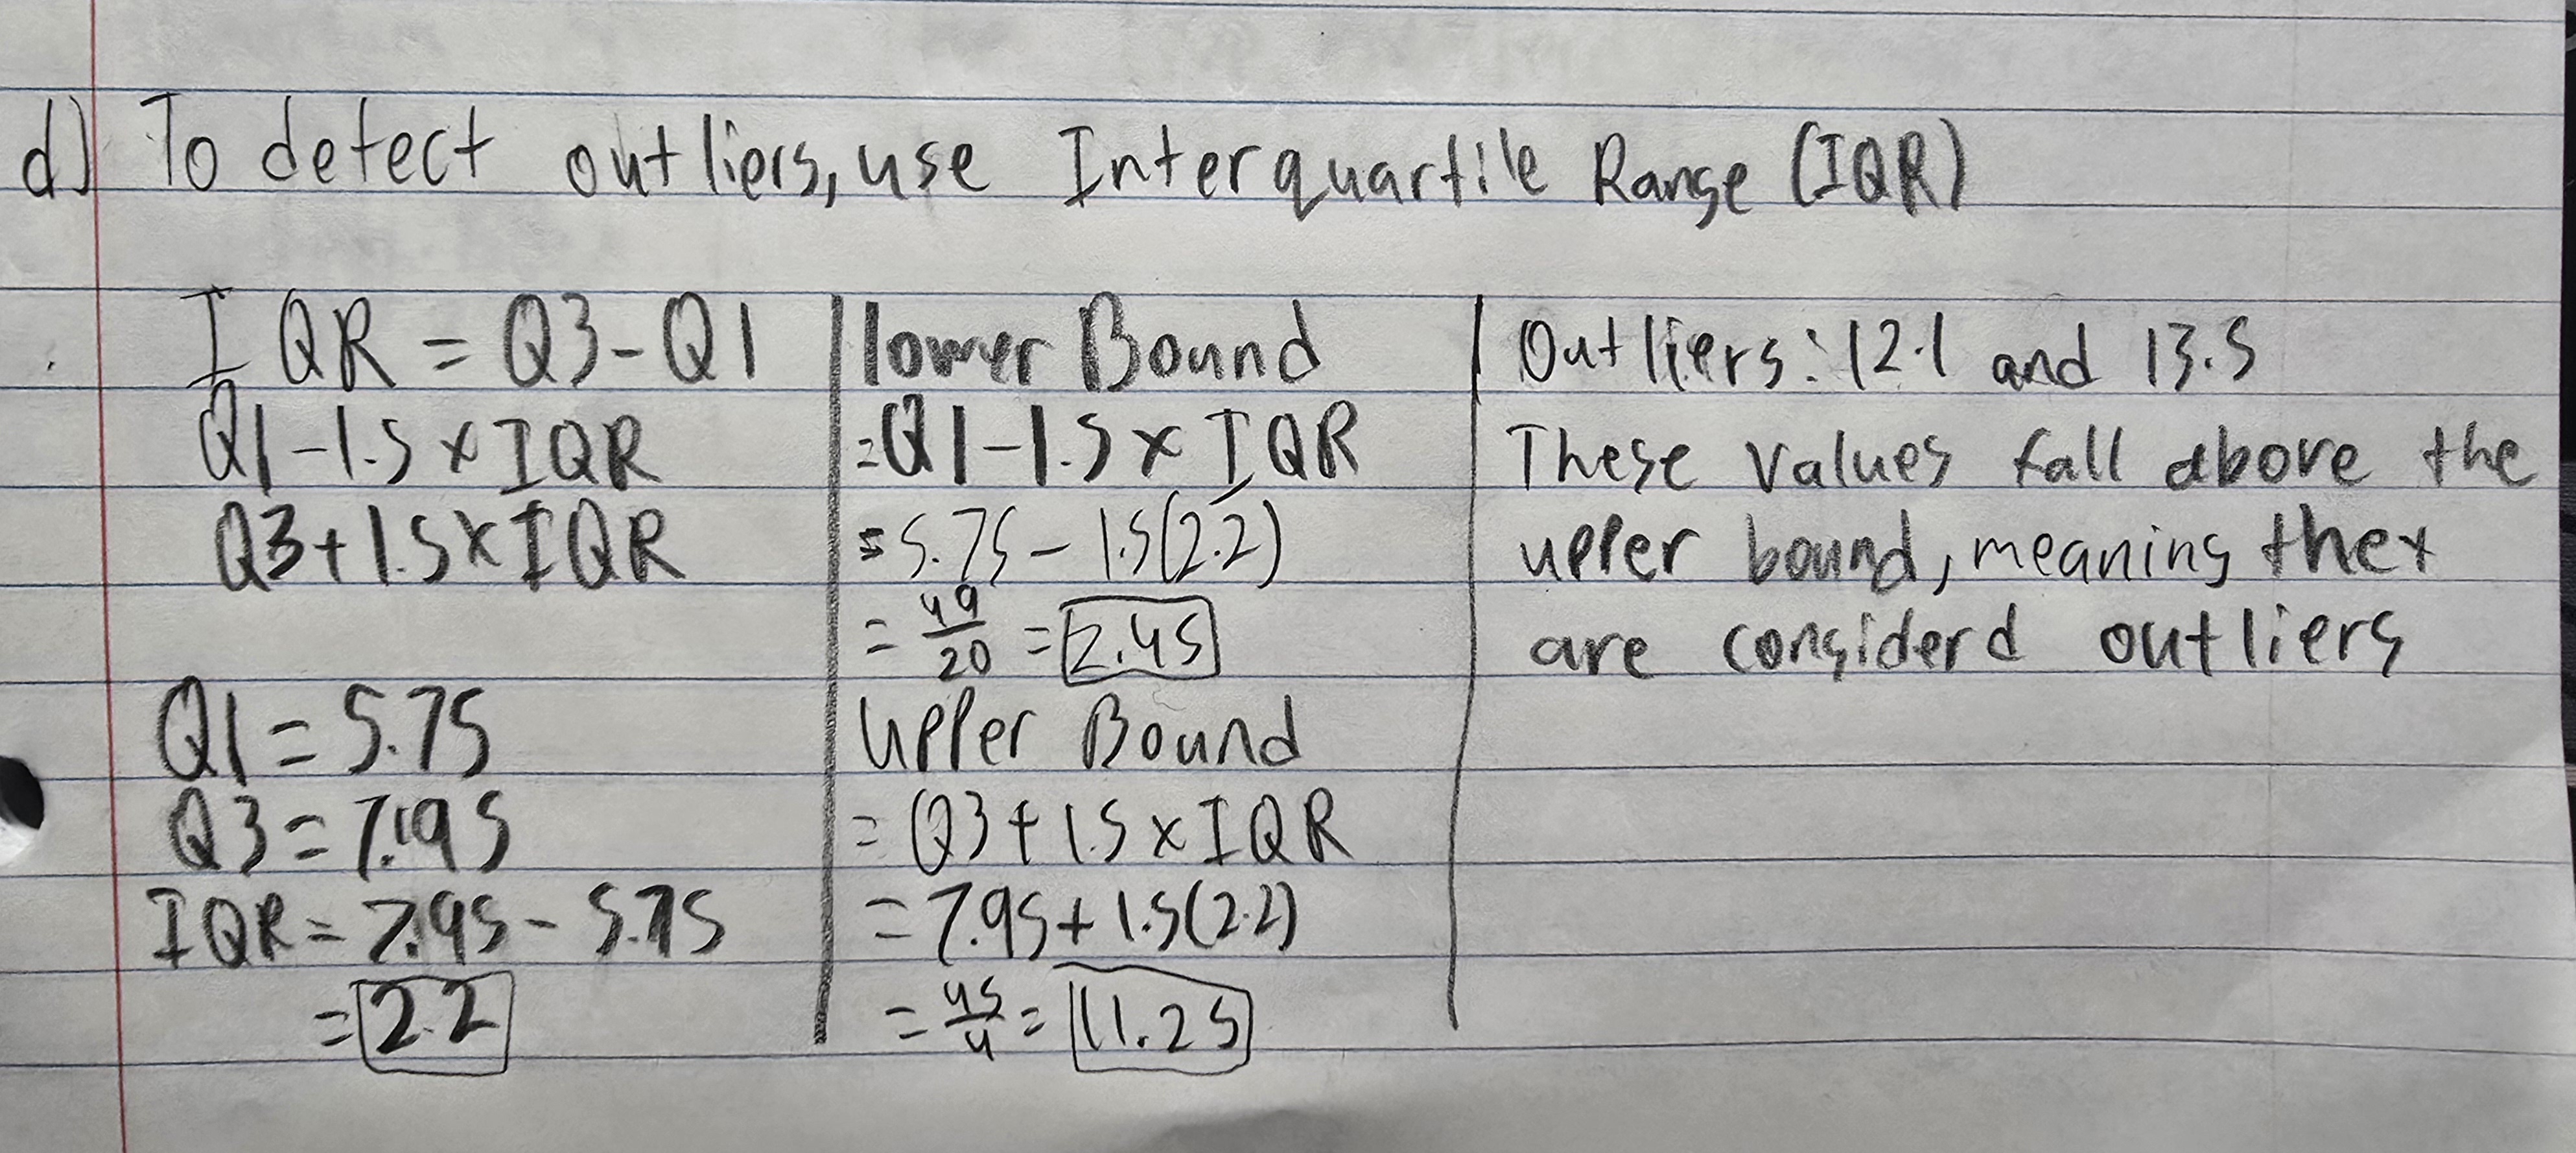 d) To detect outliers, use Interquartile Range (IQR)
IQR = Q3-Q1
Q1-1.5 x IQR
Q3+1.5xIQR
Q1 = 5.75
Q3 = 7.95
IQR = 7.95 - 5.75
= 2.2
lower Bound
= Q1-1.5 x IQR
= 5.75 - 1.5(2.2)
= 49/20 = 2.45
Upper Bound
= Q3+1.5 x IQR
= 7.95 + 1.5(2.2)
= 45/4 = 11.25
Outliers: 12.1 and 13.5
These values fall above the
upper bound, meaning they
are considerd outliers